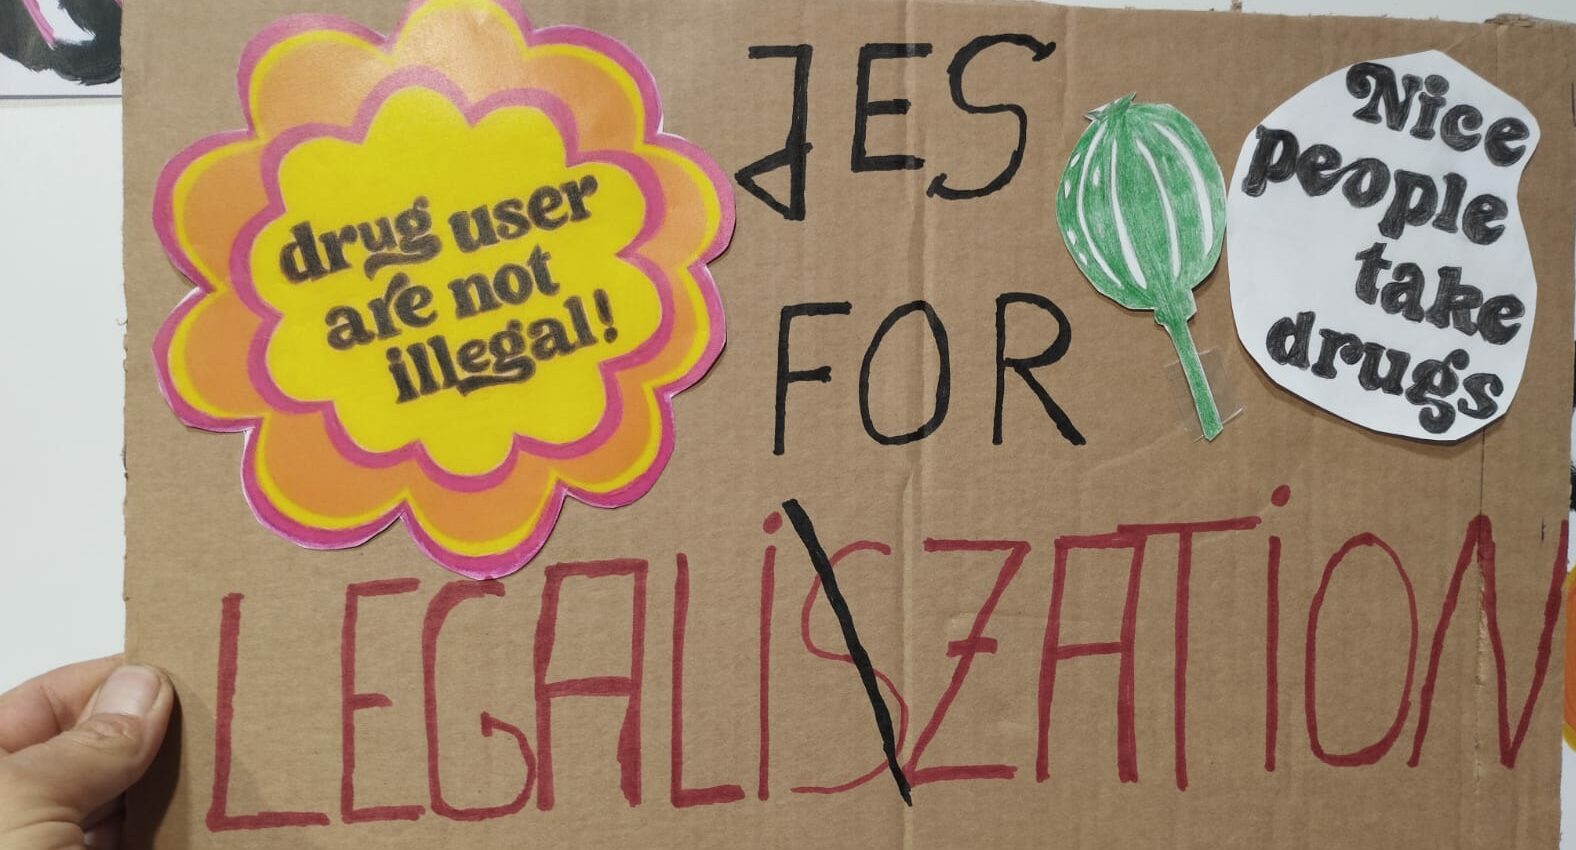 drug user
are not
illegal!
JES
FOR
LEGALiSZATiON
Nice
people
take
drugs